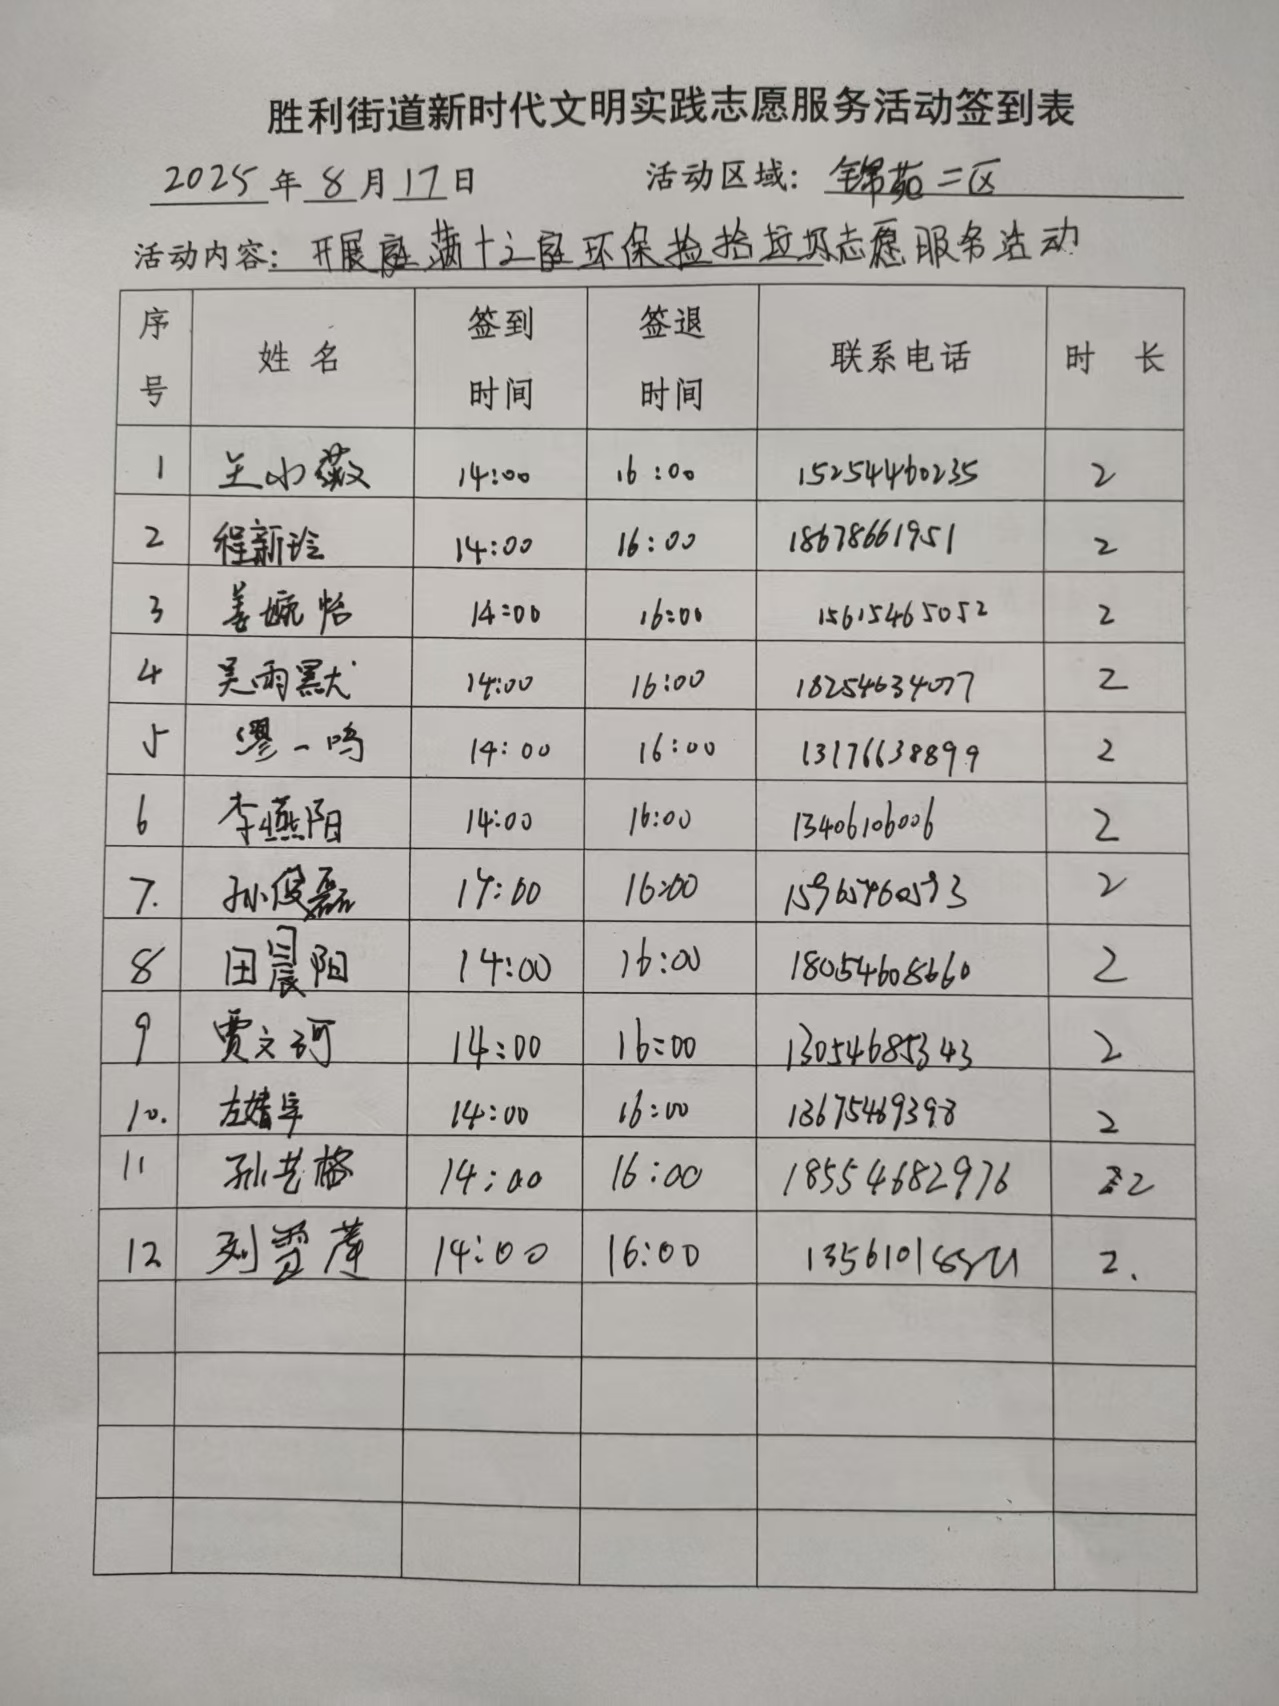 胜利街道新时代文明实践志愿服务活动签到表
2025年8月17日 活动区域：锦苑二区
活动内容：开展 满十之 环保捡拾垃圾志愿服务活动
序号 姓名 签到时间 签退时间 联系电话 时长
1 王小薇 14:00 16:00 15254460235 2
2 程新玲 14:00 16:00 18678661951 2
3 姜婉怡 14:00 16:00 15615465052 2
4 吴雨默 14:00 16:00 18254634077 2
5 缪一鸣 14:00 16:00 13176638899 2
6 李燕阳 14:00 16:00 13406106006 2
7. 孙俊磊 14:00 16:00 15965960593 2
8 田晨阳 14:00 16:00 18054608660 2
9 贾文珂 14:00 16:00 13054685343 2
10. 左婧 14:00 16:00 13675469398 2
11 孙艺格 14:00 16:00 18554682976 2
12 刘雪莲 14:00 16:00 2.